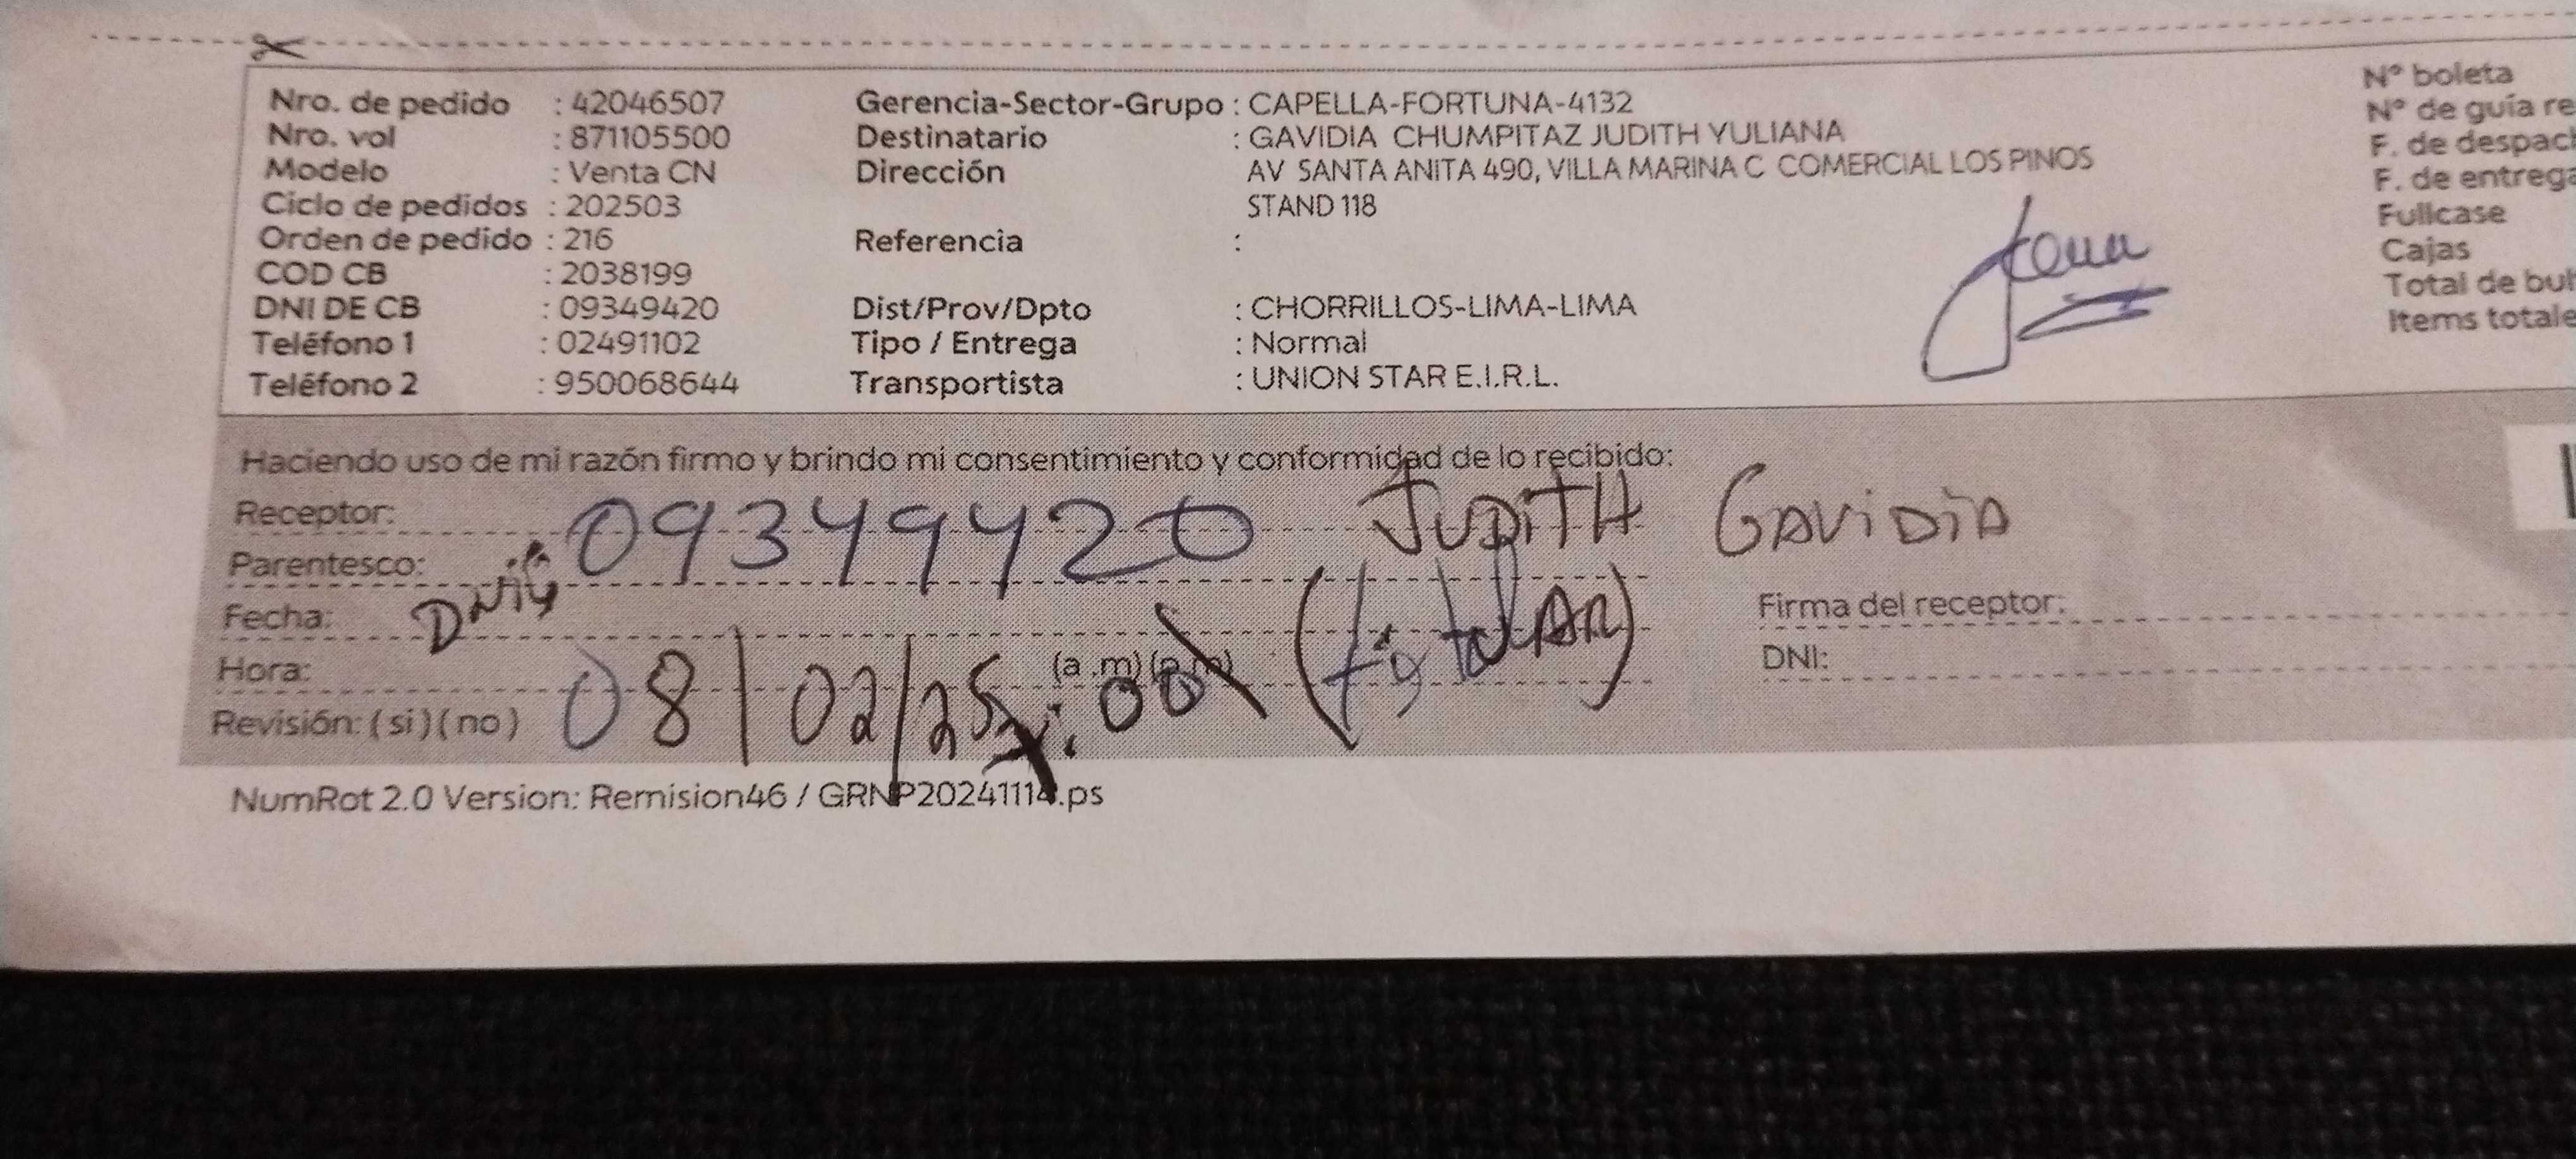 Nro. de pedido : 42046507
Nro. vol : 871105500
Modelo : Venta CN
Ciclo de pedidos : 202503
Orden de pedido : 216
COD CB : 2038199
DNI DE CB : 09349420
Teléfono 1 : 02491102
Teléfono 2 : 950068644
Gerencia-Sector-Grupo : CAPELLA-FORTUNA-4132
Destinatario : GAVIDIA CHUMPITAZ JUDITH YULIANA
Dirección AV SANTA ANITA 490, VILLA MARINA C COMERCIAL LOS PINOS
STAND 118
Referencia :
Dist/Prov/Dpto : CHORRILLOS-LIMA-LIMA
Tipo / Entrega : Normal
Transportista : UNION STAR E.I.R.L.
N° boleta
N° de guía re
F. de despach
F. de entrega
Fullcase
Cajas
Total de bul
Items totale
Haciendo uso de mi razón firmo y brindo mi consentimiento y conformidad de lo recibido:
Receptor: 09349420 JUDITH GAVIDIA
Parentesco:
Fecha: (titular)
Hora: (a.m)(p.m)
Revisión: (si)(no) 08/02/25
Firma del receptor:
DNI:
NumRot 2.0 Version: Remision46 / GRNP20241114.ps